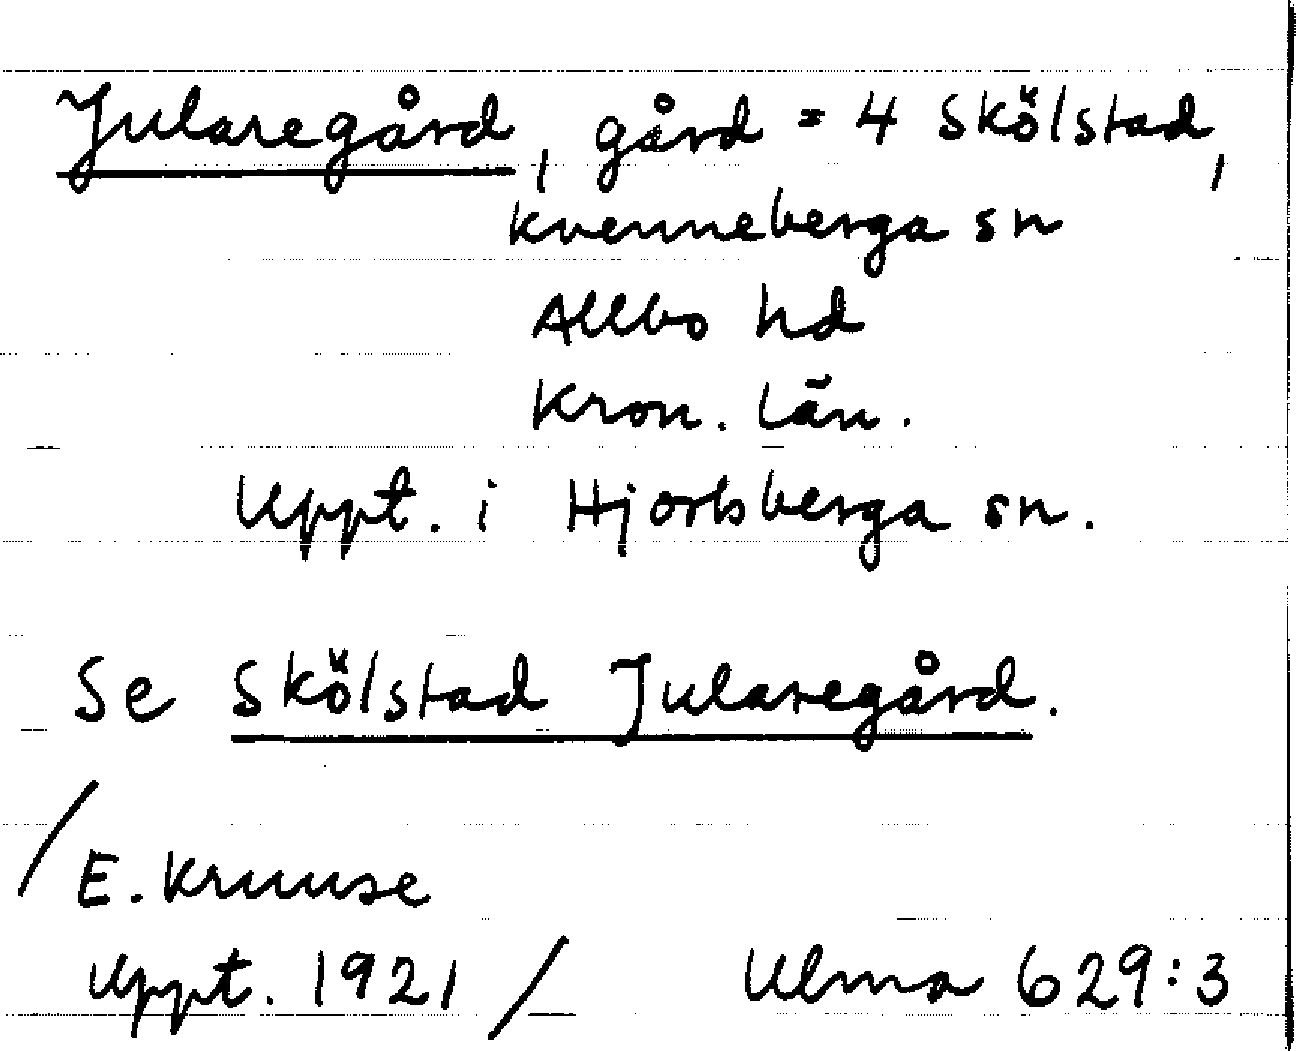 Jularegård, gård = 4 Skölstad,
Kvenneberga sn
Allbo hd
Kron. län.
Uppt. i Hjortsberga sn.
Se Skölstad Jularegård.
/E. Kruuse
Uppt. 1921/ Ulma 629:3